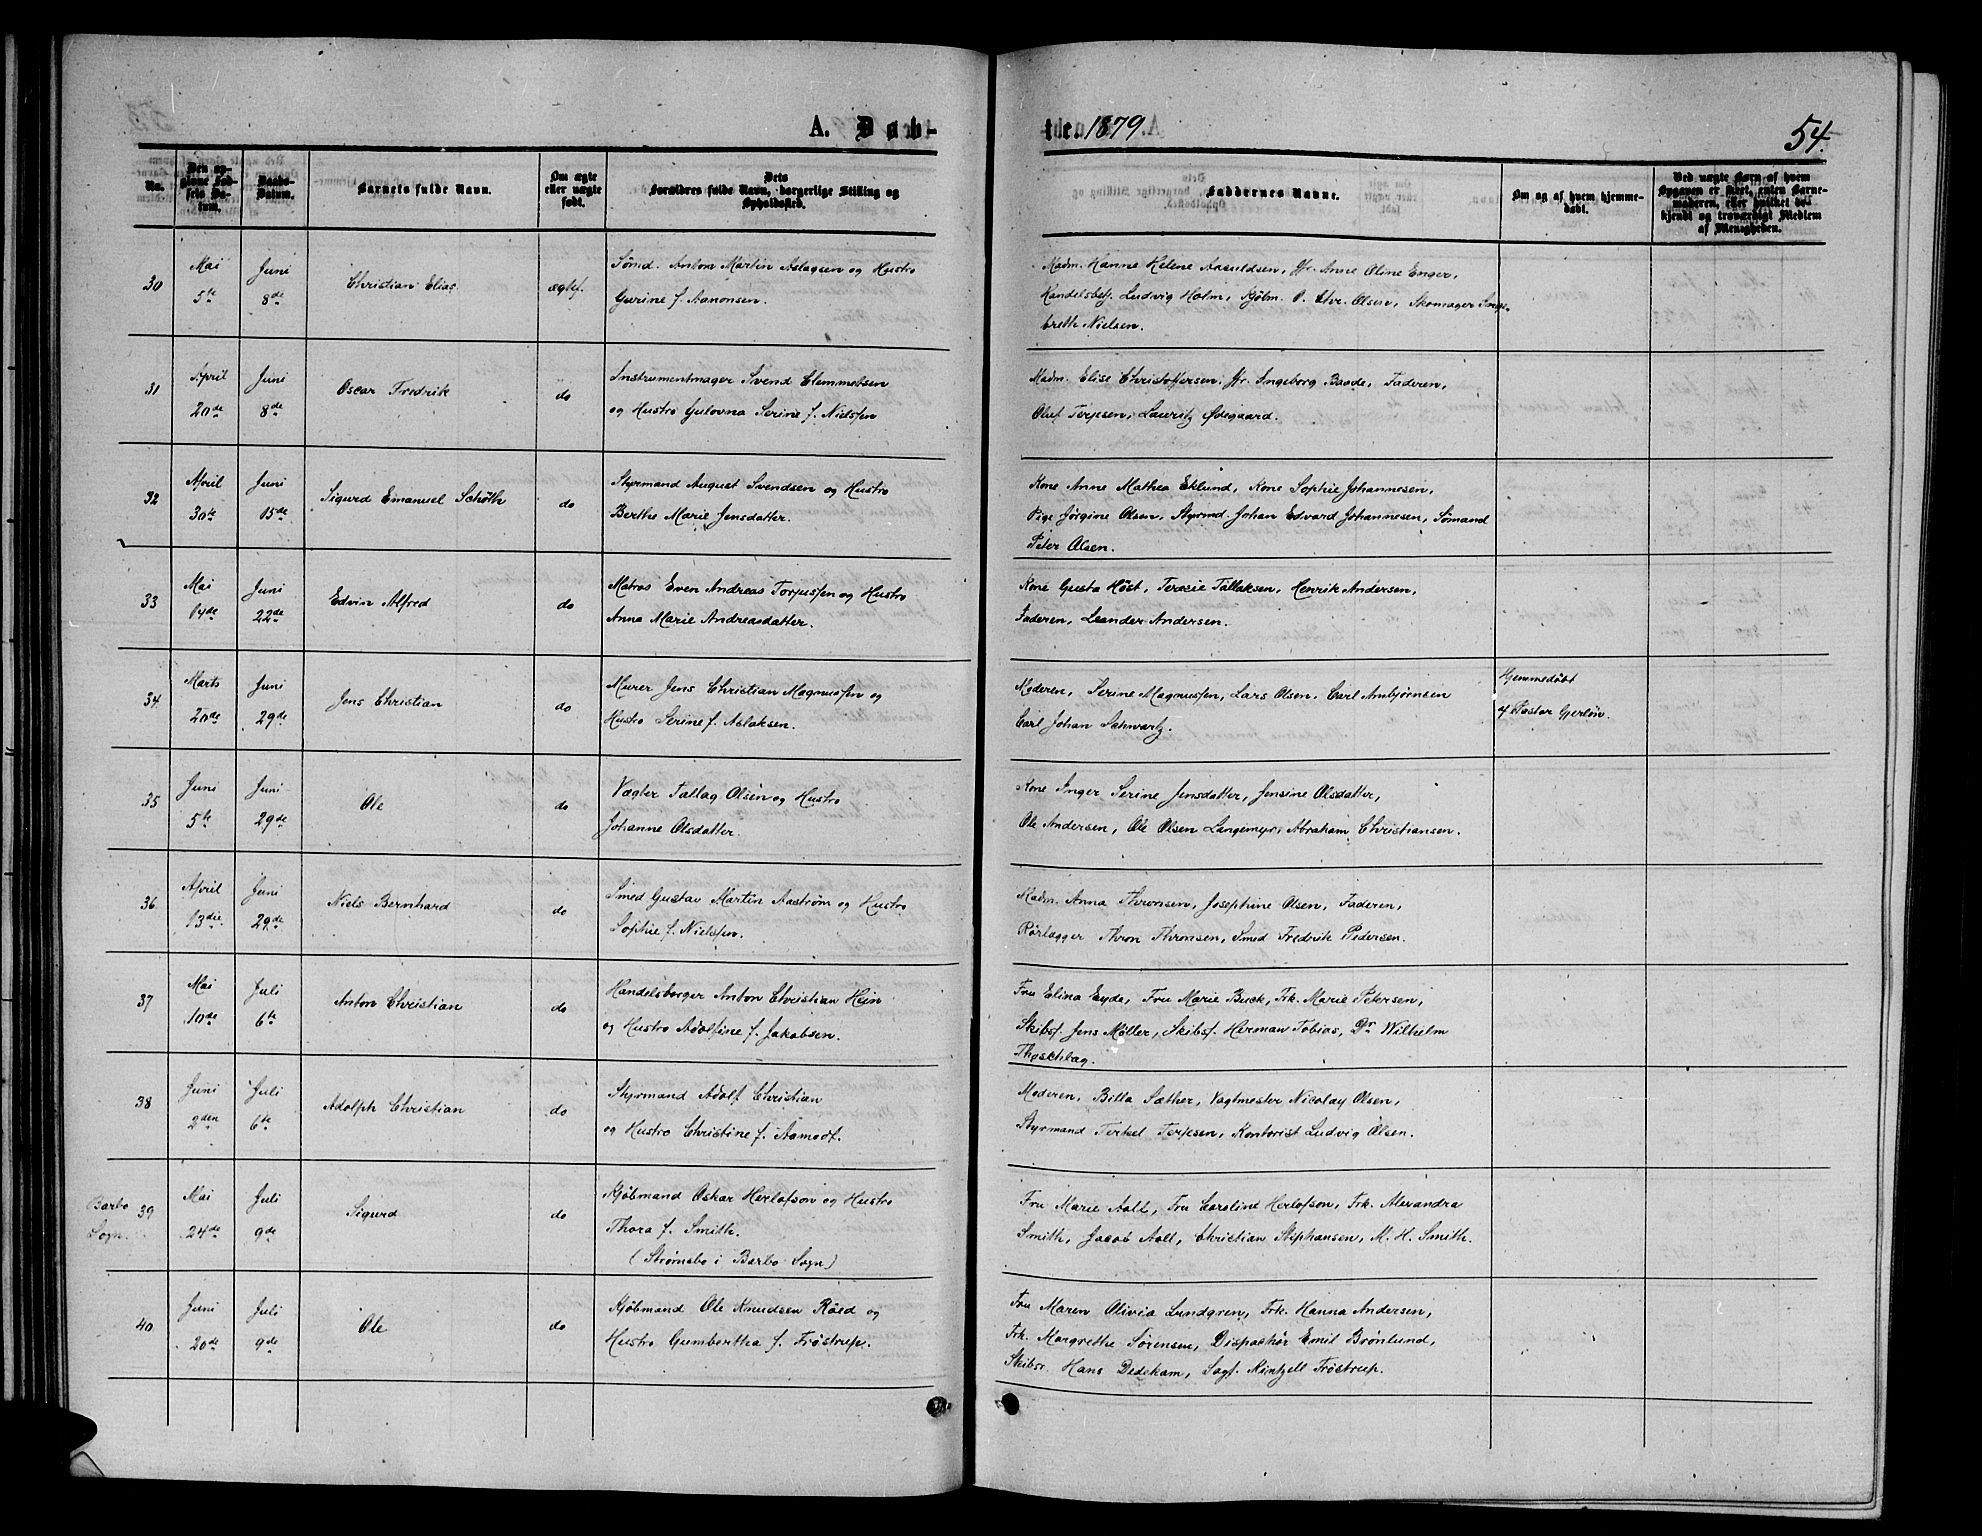 A. Døb-
te. 1879.
54.
No.
Den op-
givne Fød-
sels Da-
tum.
Daabs-
Datum.
Barnets fulde Navn.
Om ægte
eller uægte
født.
Dets
Forældres fulde Navn, borgerlige Stilling og
Opholdssted.
Faddernes Navne.
Om og af hvem hjemme-
døbt.
Ved uægte Børn af hvem
Opgaven er skeet, enten Barne-
moderen, eller hvilket be-
kjendt og troværdigt Medlem
af Menigheden.
30
Mai
5te
Juni
8de
Christian Elias
ægtef.
Sømd. Anton Martin Aslagsen og Hustro
Gurine f. Aanonsen.
Madm. Hanne Helene Aasuldsen, Jfr. Anne Oline Enger,
Handelsbest. Ludvig Holm, Kjøbm. O. Chr. Olsen, Skomager Inge-
breth Nielsen.
31
April
20de
Juni
8de
Oscar Fredrik
do
Instrumentmager Svend Clemmetsen
og Hustro Gulovna Serine f. Nielsen
Madm. Elise Christoffersen, Jfr. Ingeborg Baade, Faderen,
Oluf Terjesen, Lauritz Ødegaard.
32
April
30te
Juni
15de
Sigurd Emanuel Schøth
do
Styrmand August Svendsen og Hustro
Berthe Marie Jensdatter.
Kone Anne Mathea Eklund, Kone Sophie Johannesen,
Pige Jørgine Olsen, Styrmd. Johan Edvard Johannesen, Sømand
Peter Olsen.
33
Mai
14de
Juni
22de
Edvin Alfred
do
Matros Even Andreas Torjussen og Hustro
Anna Marie Andreasdatter.
Kone Gusta Høst, Terecie Tallaksen, Henrik Andersen,
Faderen, Leander Andersen.
34
Marts
20de
Juni
29de
Jens Christian
do
Murer Jens Christian Magnussen og
Hustro Serine f. Aslaksen.
Moderen, Serine Magnussen, Lars Olsen, Carl Ambjørnsen
Carl Johan Schwartz.
Hjemmedøbt
af Pastor Gjerløw.
35
Juni
5te
Juni
29de
Ole
do
Vægter Tallag Olsen og Hustro
Johanne Olsdatter.
Kone Inger Serine Jensdatter, Jensine Olsdatter,
Ole Andersen, Ole Olsen Langemyr, Abraham Christiansen.
36
April
13die
Juni
29de
Niels Bernhard
do
Smed Gustav Martin Aastrøm og Hustro
Sophie f. Nielsen.
Madm. Anna Thronsen, Josephine Olsen, Faderen,
Rørlægger Thron Thronsen, Smed Fredrik Pedersen.
37
Mai
10de
Juli
6te
Anton Christian
do
Handelsborger Anton Christian Hein
og Hustro Adolfine f. Jakobsen.
Fru Elina Eyde, Fru Marie Buck, Frk. Marie Petersen,
Skibsf. Jens Møller, Skibsf. Herman Tobias, Dr. Wilhelm
Thaschlag.
38
Juni
2den
Juli
6te
Adolph Christian
do
Styrmand Adolf Christian
og Hustro Christine f. Aamodt.
Moderen, Bilta Sæther, Vagtmester Nicolay Olsen,
Styrmand Terkel Terjesen, Kontorist Ludvig Olsen.
Barbo
Sogn.
39
Mai
24de
Juli
9de
Sigurd
do
Kjøbmand Oskar Herlofson og Hustro
Thora f. Smith.
(Strømsbo i Barbo Sogn)
Fru Marie Aall, Fru Caroline Herlofson, Frk. Alexandra
Smith, Jacob Aall, Christian Stephansen, M. H. Smith.
40
Juni
20de
Juli
9de
Ole
do
Kjøbmand Ole Knudsen Röed og
Hustro Gumbertha f. Frøstrup.
Fru Maren Olivia Lundgren, Frk. Hanna Andersen,
Frk. Margrethe Sørensen, Dispachør Emil Brønlund,
Skibsr. Hans Dedekam, Sagf. Kintzell Frøstrup.